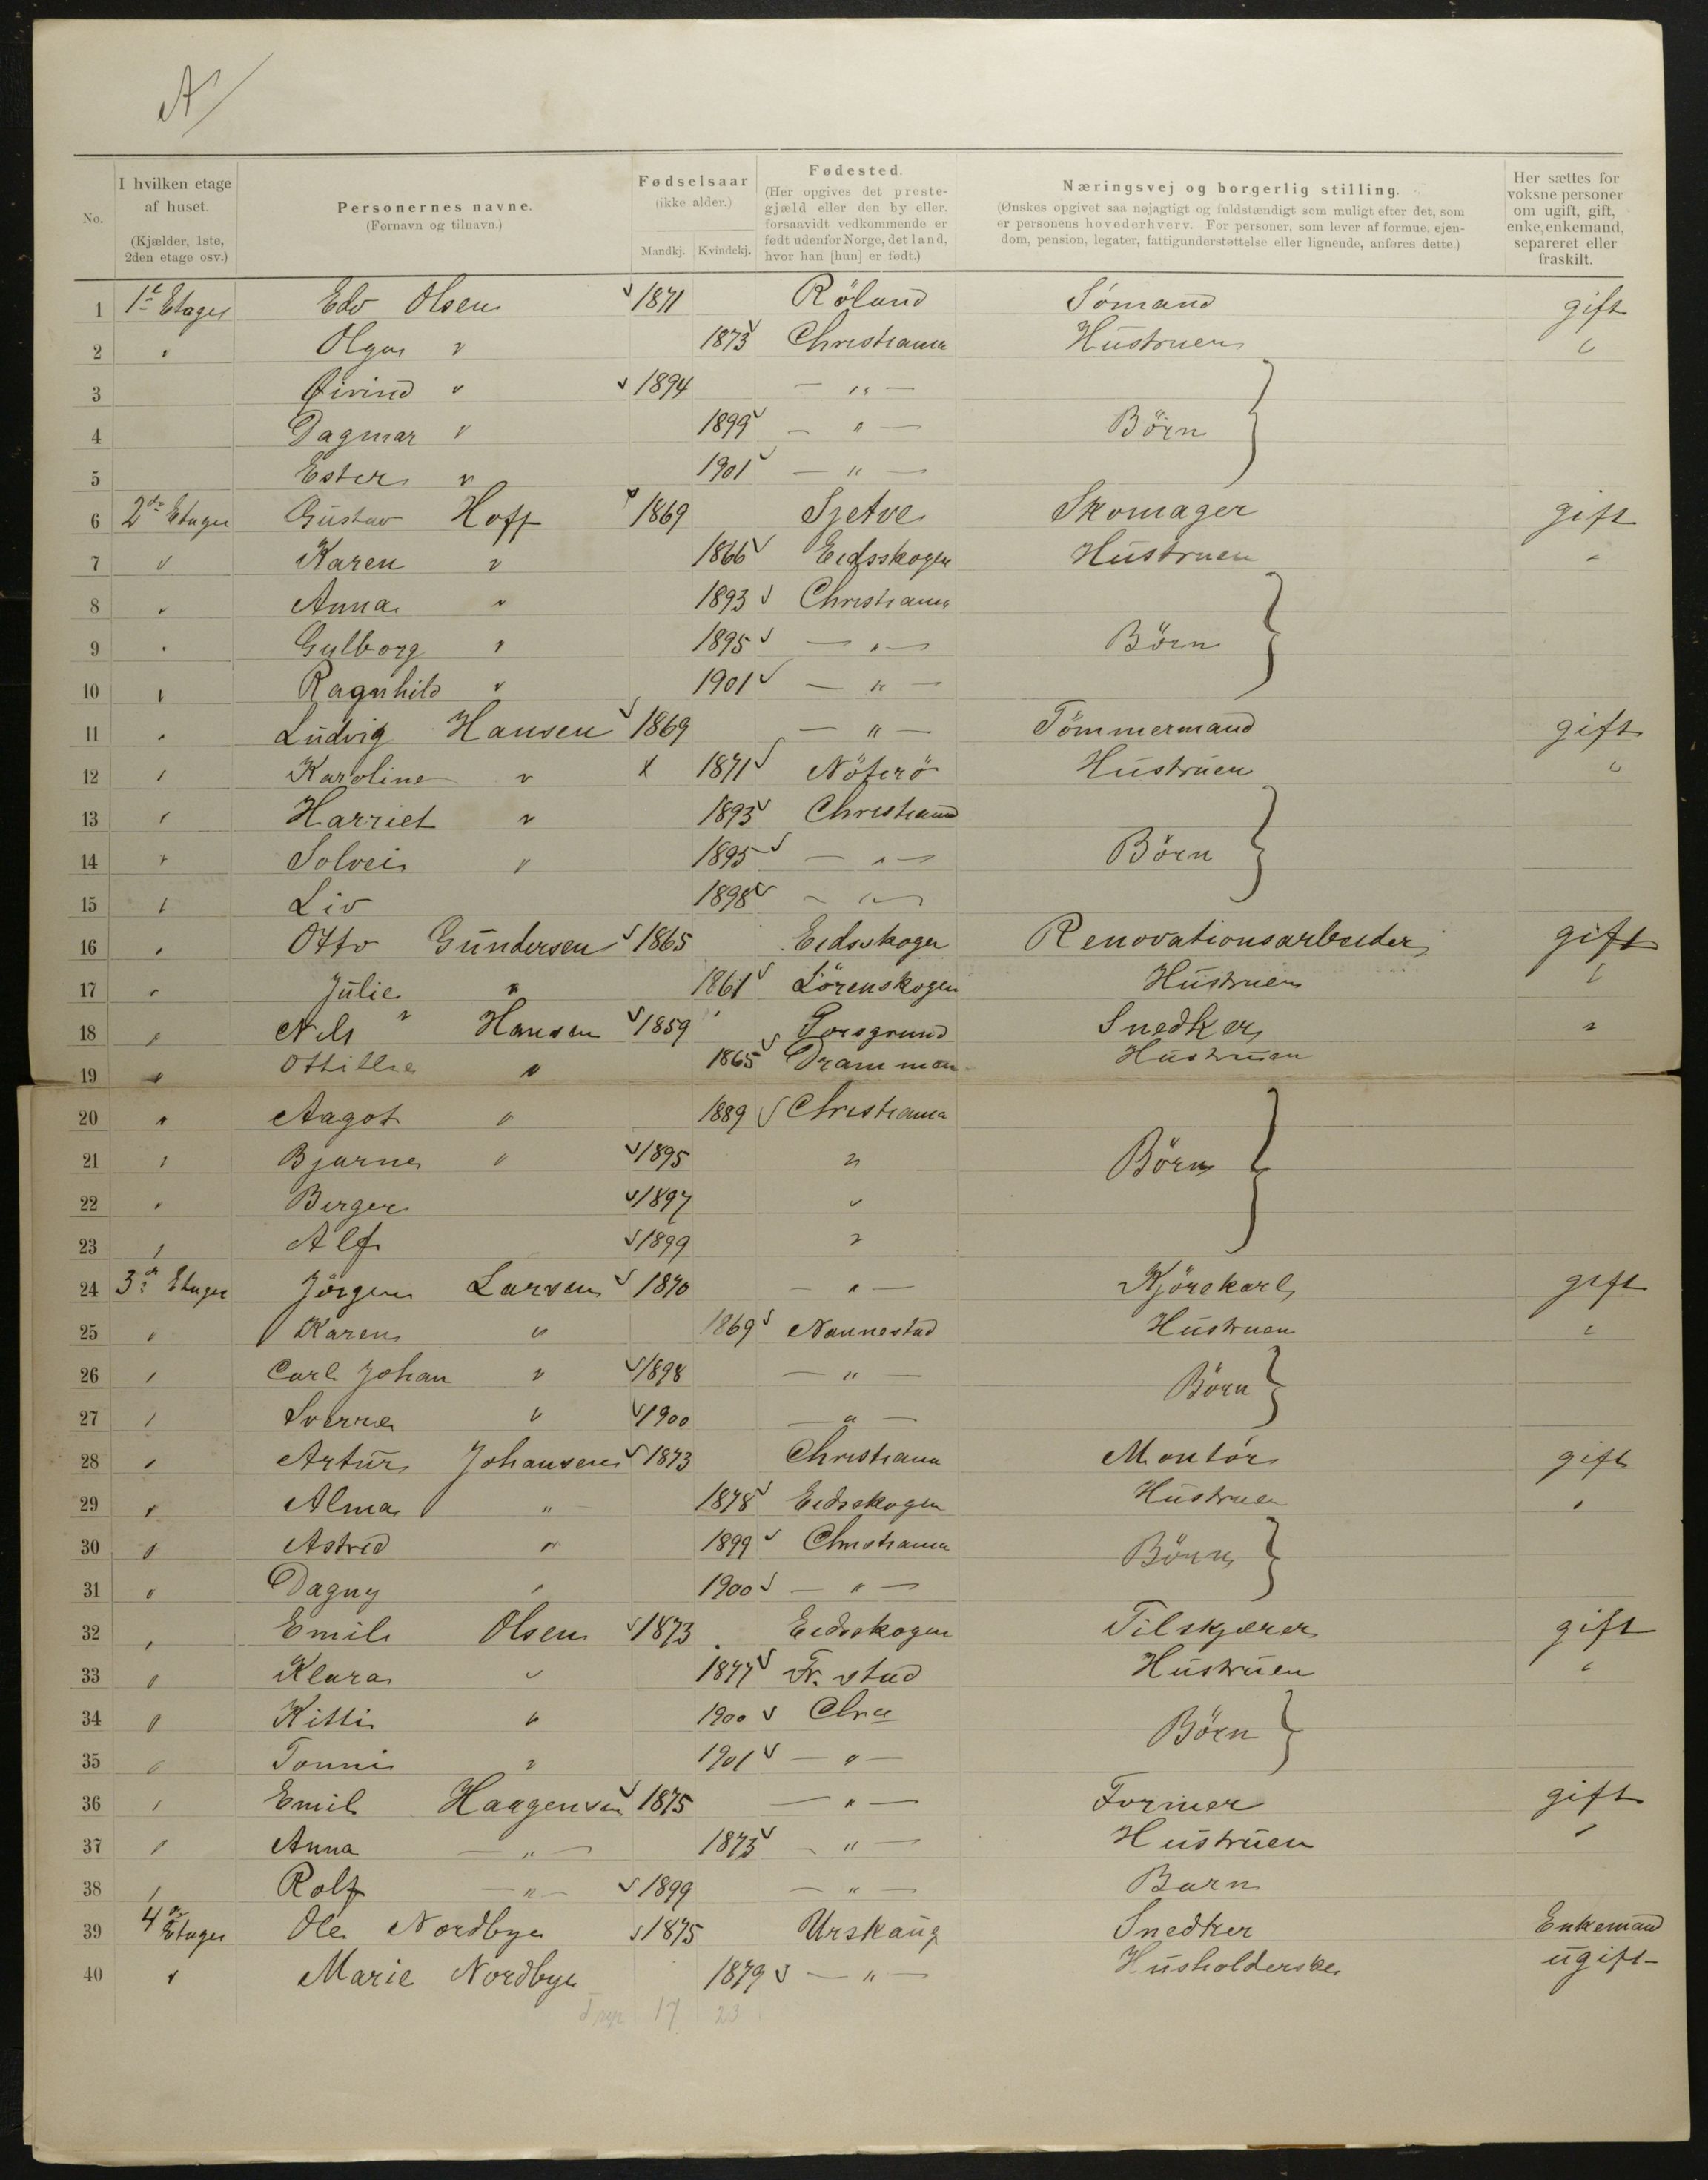 A
No.
I hvilken etage af huset. (Kjælder, 1ste, 2den etage osv.)
Personernes navne. (Fornavn og tilnavn.)
Fødselsaar (ikke alder.) Mandkj. Kvindekj.
Fødested. (Her opgives det prestegjæld eller den by eller, forsaavidt vedkommende er født udenfor Norge, det land, hvor han [hun] er født.)
Næringsvej og borgerlig stilling. (Ønskes opgivet saa nøjagtigt og fuldstændigt som muligt efter det, som er personens hovederhverv. For personer, som lever af formue, ejendom, pension, legater, fattigunderstøttelse eller lignende, anføres dette.)
Her sættes for voksne personer om ugift, gift, enke, enkemand, separeret eller fraskilt.
1 1e Etage Edv Olsen 1871 Röland Sömand gift
2 " Olga " 1873 Christiania Hustruen "
3 Øivind " 1894 — " —
4 Dagmar " 1899 — " — Börn
5 Ester " 1901 — " —
6 2de Etage Gustav Hoff 1869 Skomager gift
7 " Karen " 1866 Eidsskogen Hustruen "
8 " Anna " 1893 Christiania
9 " Gulborg " 1895 — " — Börn
10 " Ragnhild " 1901 — " —
11 " Ludvig Hansen 1869 — " — Tömmermand gift
12 " Karoline " x 1871 Nöterö Hustruen "
13 " Harriet " 1893 Christiania
14 " Solvei " 1895 — " — Börn
15 " Liv 1898 — " —
16 " Otto Gundersen 1865 Eidsskogen Renovationsarbeider gift
17 " Julie " 1861 Lörenskogen Hustruen "
18 " Nils Hansen 1859 Porsgrund Snedker "
19 " Ottillie " 1865 Drammen Hustruen
20 " Aagot " 1889 Christiania
21 " Bjarne " 1895 " Börn
22 " Birger 1897 "
23 " Alf 1899 "
24 3de Etage Jörgen Larsen 1870 — " — Kjörekarl gift
25 " Karen " 1869 Nannestad Hustruen "
26 " Carl Johan " 1898 — " — Börn
27 " Sverre " 1900 — " —
28 " Artur Johansen 1873 Christiania Montör gift
29 " Alma " 1878 Eidsskogen Hustruen "
30 " Astrid " 1899 Christiania Börn
31 " Dagny " 1900 — " —
32 " Emil Olsen 1873 Eidsskogen Tilskjærer gift
33 " Klara " 1877 Fr. stad Hustruen "
34 " Kitti " 1900 Chra Börn
35 " Tonni " 1901 — " —
36 " Emil Haagensen 1875 — " — Former gift
37 " Anna — " — 1873 — " — Hustruen "
38 " Rolf — " — 1899 — " — Barn
39 4de Etage Ole Nordbye 1875 Urskaug Snedker Enkemand
40 " Marie Nordbye 1879 — " — Husholderske ugift
17 23